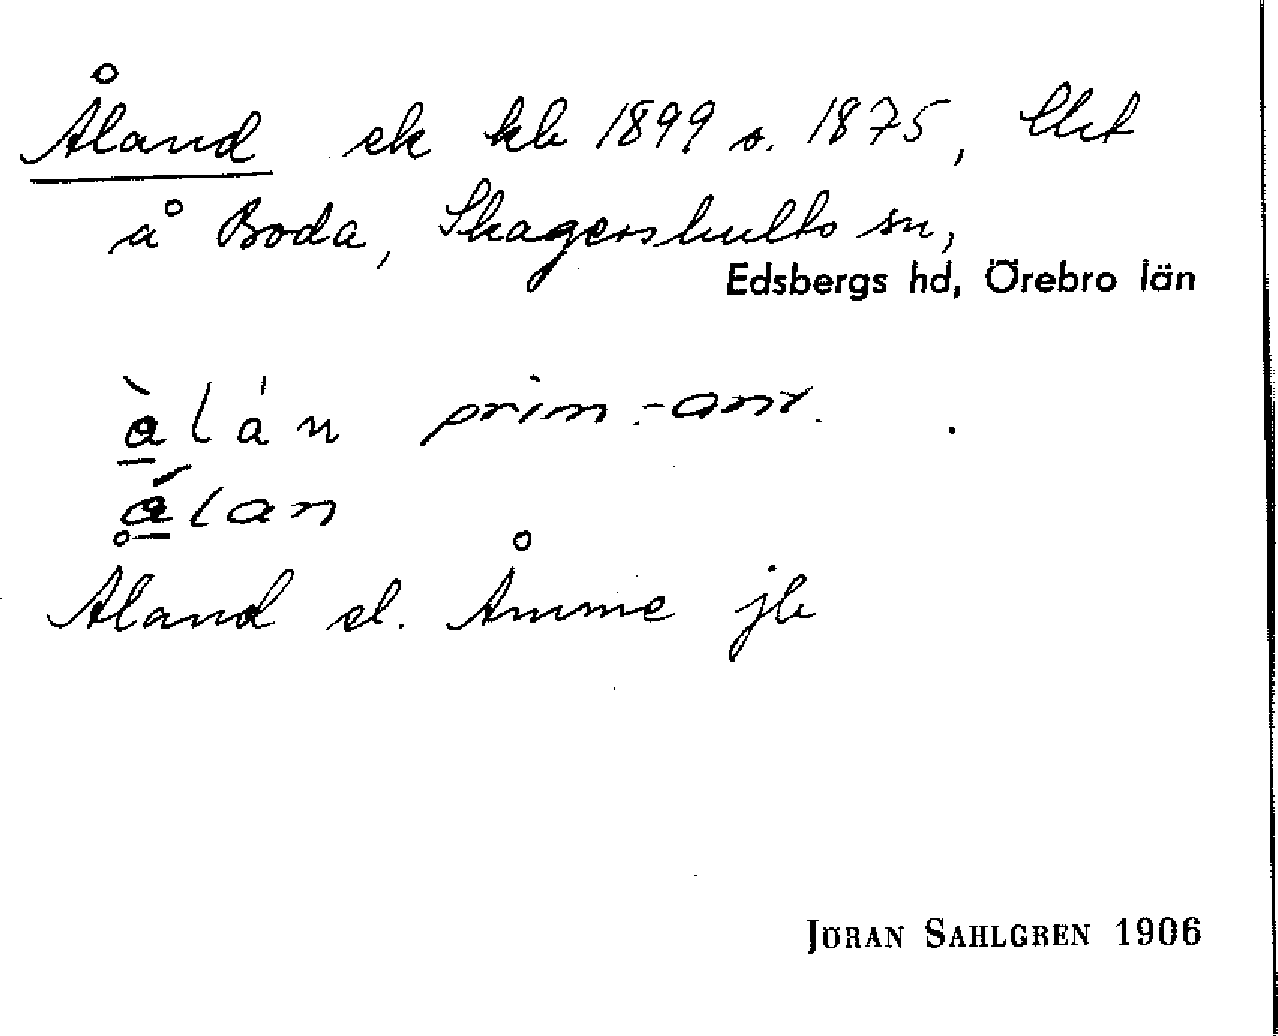 Åland ek kb 1899 s. 1875, tlht
å Boda, Skagershults sn,
Edsbergs hd, Örebro län
àlán prim.-anv.
álan
Åland el. Åmme jb
JÖRAN SAHLGREN 1906